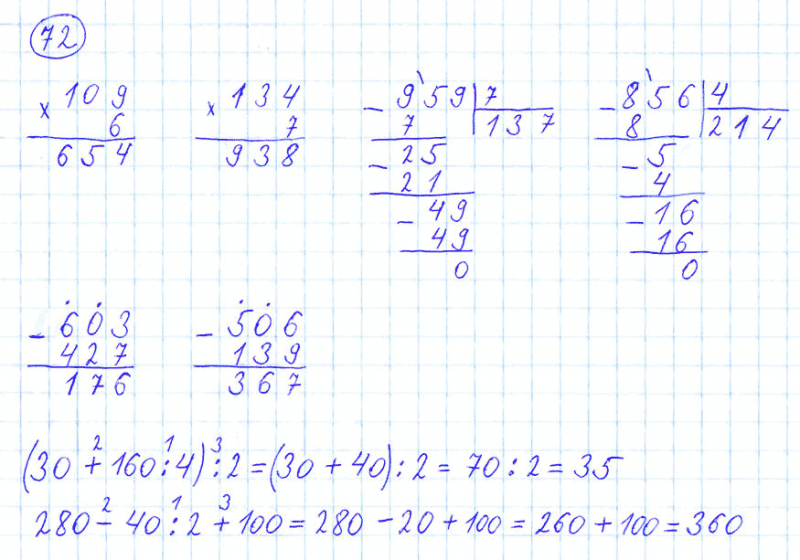 72
× 109
6
654
× 134
7
938
- 959 | 7
7 | 137
- 25
21
- 49
49
0
- 856 | 4
8 | 214
- 5
4
- 16
16
0
- 603
427
176
- 506
139
367
(30 +² 160 :¹ 4) :³ 2 = (30 + 40) : 2 = 70 : 2 = 35
280 -² 40 :¹ 2 +³ 100 = 280 - 20 + 100 = 260 + 100 = 360